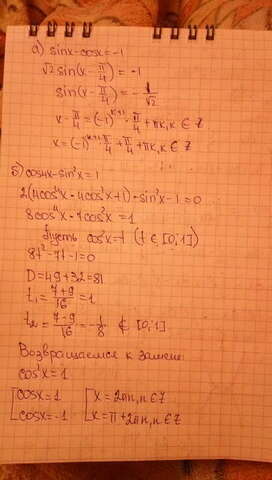 а) sinx-cosx=-1
√2 sin(x-π/4)=-1
sin(x-π/4)=-1/√2
x-π/4=(-1)^(k+1)·π/4+πk, k∈Z
x=(-1)^(k+1)π/4+π/4+πk, k∈Z
б) cos4x-sin²x=1
2(4cos⁴x-4cos²x+1)-sin²x-1=0
8cos⁴x-7cos²x=1
Пусть cos²x=t (t∈[0;1])
8t²-7t-1=0
D=49+32=81
t₁=(7+9)/16=1
t₂=(7-9)/16=-1/8 ∉[0;1]
Возвращаемся к замене:
cos²x=1
[cosx=1 [x=2πn, n∈Z
[cosx=-1 [x=π+2πn, n∈Z